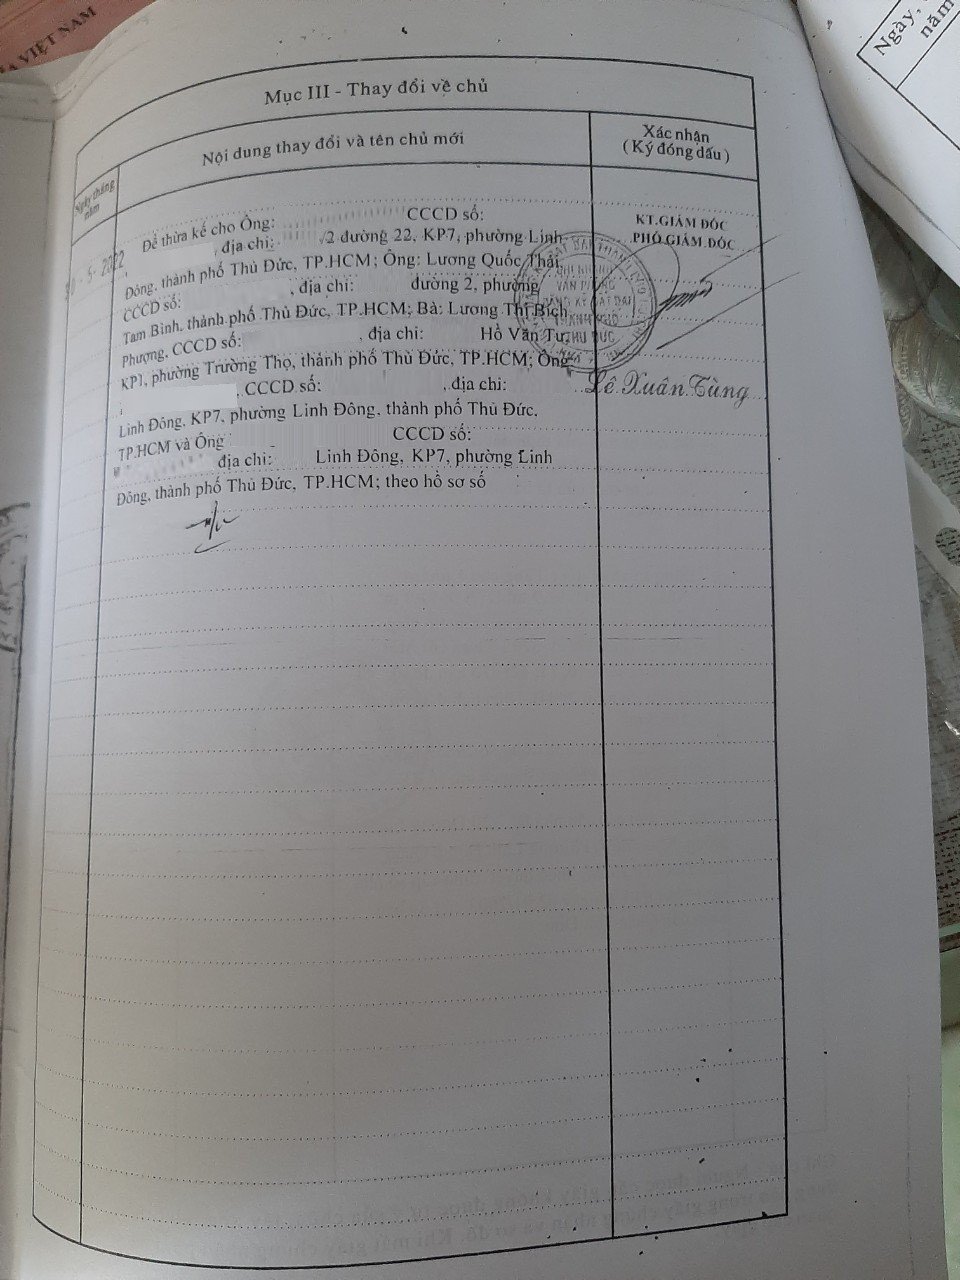 A VIỆT NAM
Ngày,
năm
Mục III - Thay đổi về chủ
Ngày tháng năm
Nội dung thay đổi và tên chủ mới
Xác nhận
(Ký đóng dấu)
5-2022
Để thừa kế cho Ông: CCCD số:
, địa chỉ: /2 đường 22, KP7, phường Linh
Đông, thành phố Thủ Đức, TP.HCM; Ông: Lương Quốc Thái
CCCD số: , địa chỉ: đường 2, phường
Tam Bình, thành phố Thủ Đức, TP.HCM; Bà: Lương Thị Bích
Phượng, CCCD số: , địa chỉ: Hồ Văn Tư,
KP1, phường Trường Thọ, thành phố Thủ Đức, TP.HCM; Ông
, CCCD số: , địa chỉ:
Linh Đông, KP7, phường Linh Đông, thành phố Thủ Đức,
TP.HCM và Ông CCCD số:
địa chỉ: Linh Đông, KP7, phường Linh
Đông, thành phố Thủ Đức, TP.HCM; theo hồ sơ số
KT.GIÁM ĐỐC
PHÓ GIÁM ĐỐC
CHI NHÁNH
VĂN PHÒNG
ĐĂNG KÝ ĐẤT ĐAI
THÀNH PHỐ
THỦ ĐỨC
Lê Xuân Tùng